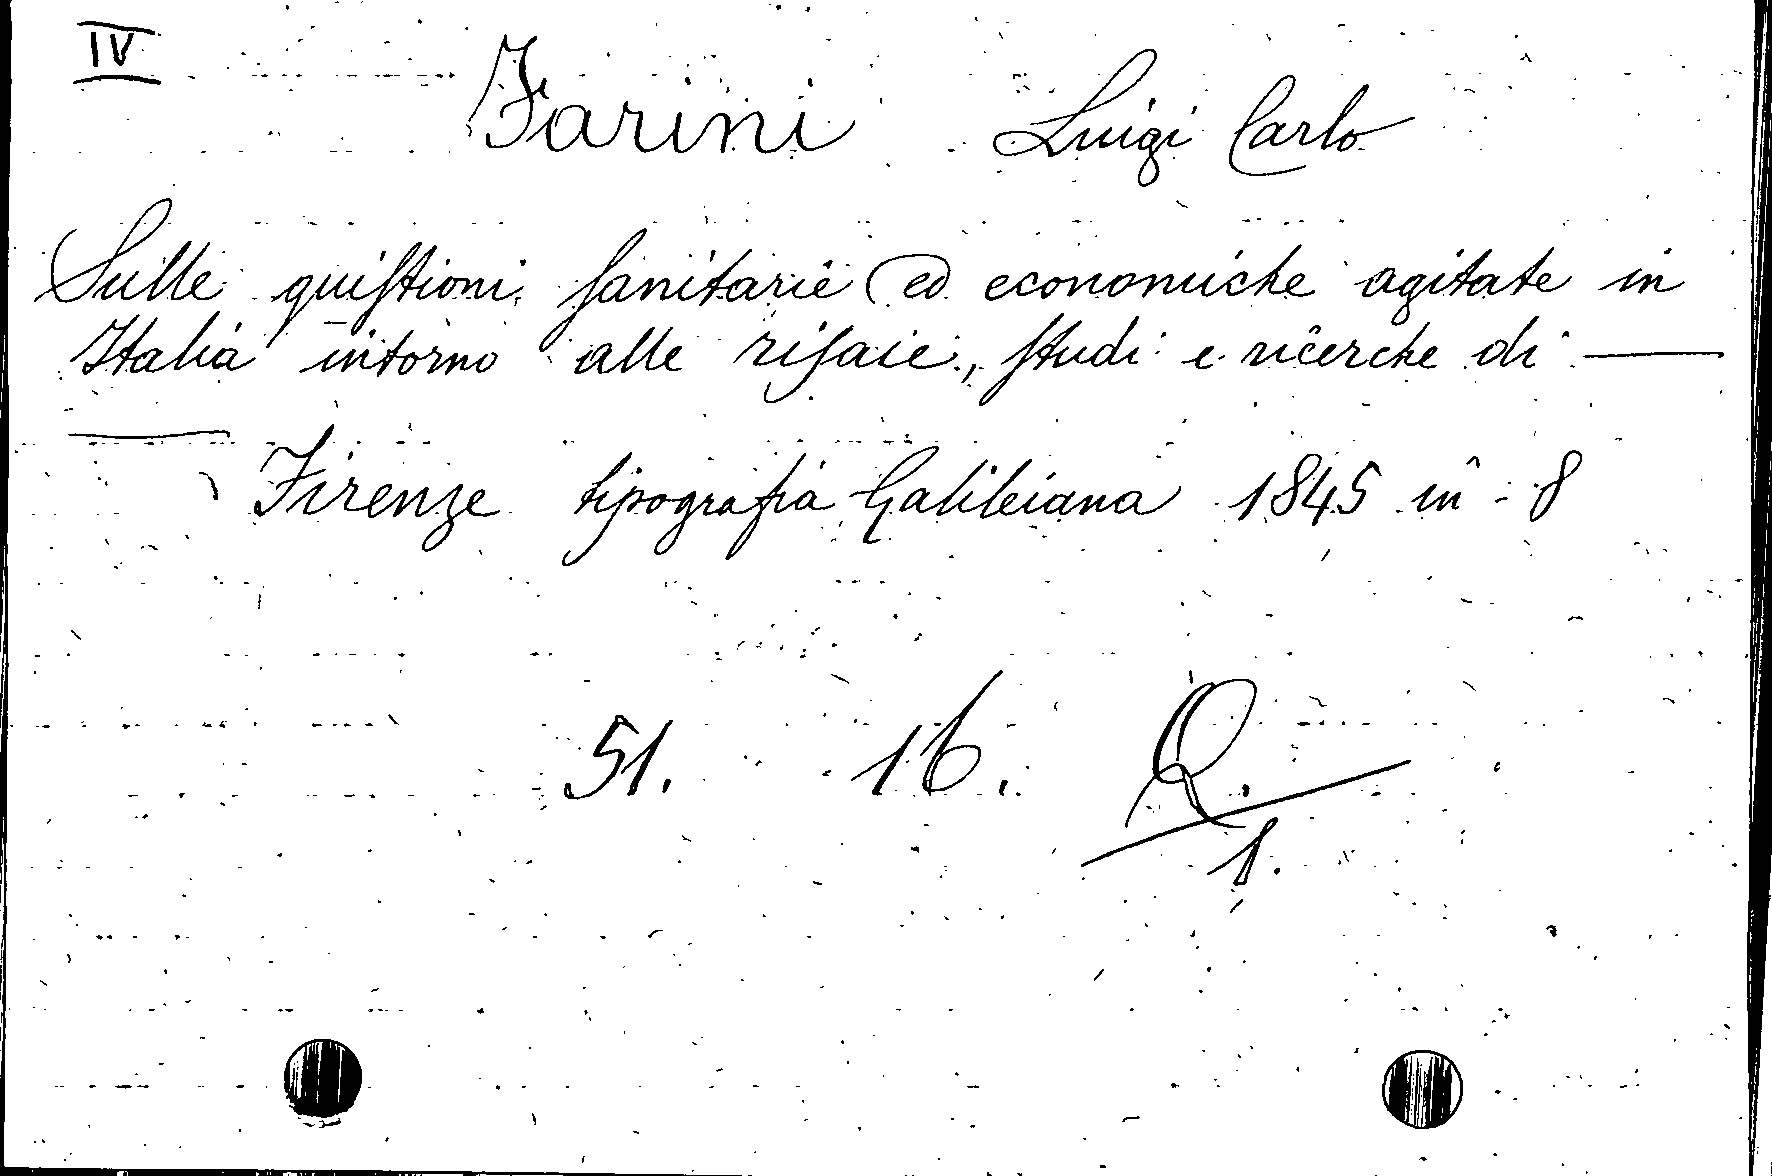 IV
Farini Luigi Carlo
Sulle quistioni sanitarie ed economiche agitate in
Italia intorno alle risaie, studi e ricerche di —
—
Firenze tipografia Galileiana 1845 in - 8
51. 16. Q.
1.